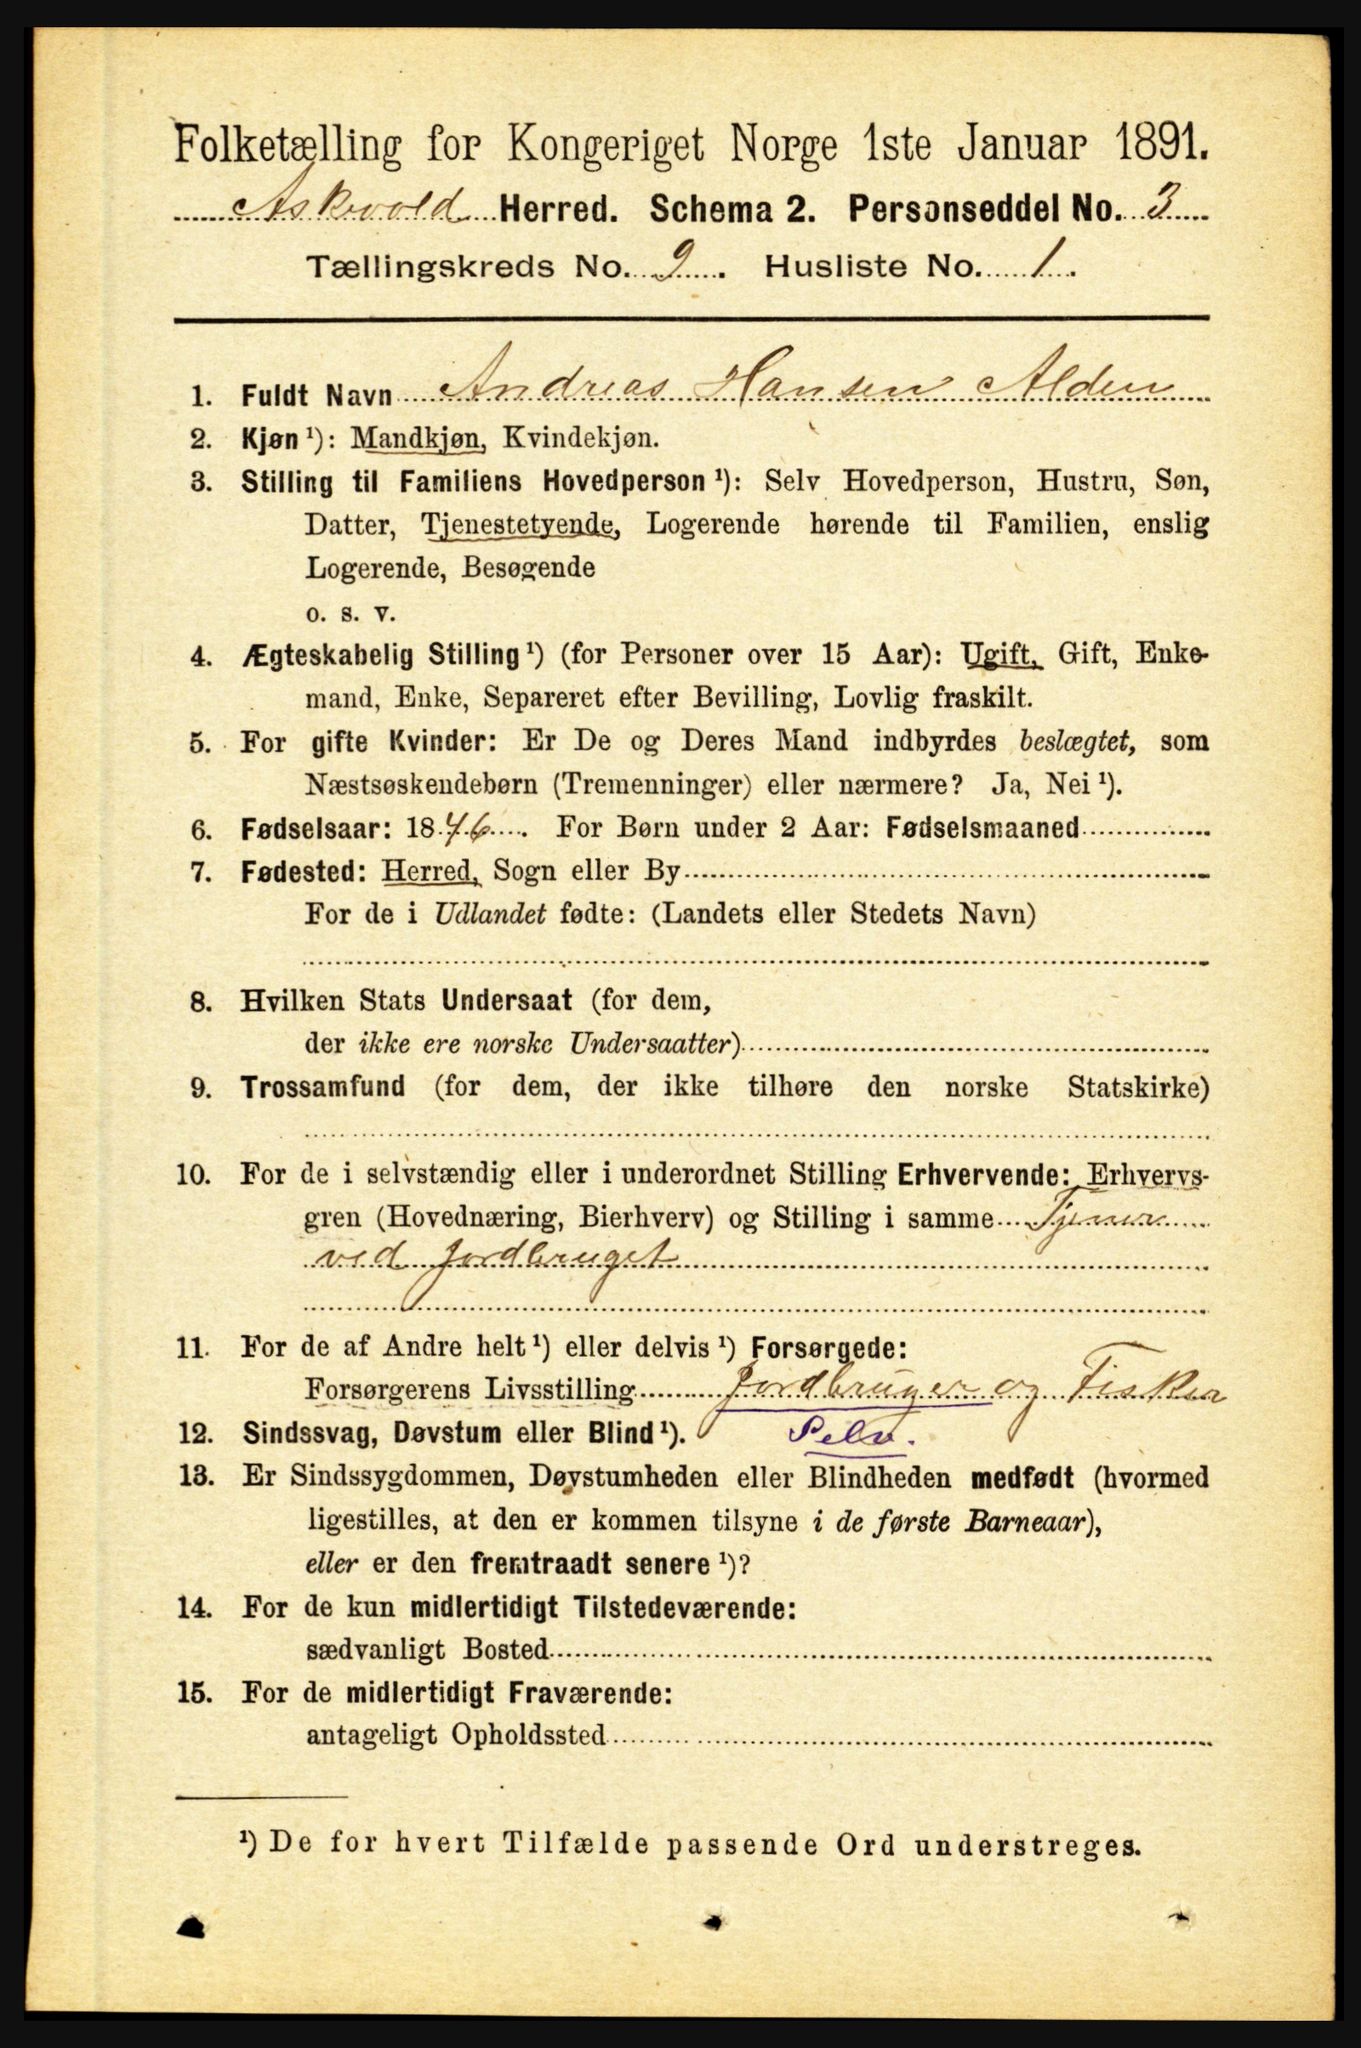 Folketælling for Kongeriget Norge 1ste Januar 1891.
Askvold Herred. Schema 2. Personseddel No. 3
Tællingskreds No. 9. Husliste No. 1.
1. Fuldt Navn Andreas Hansen Alden
2. Kjøn ¹): Mandkjøn, Kvindekjøn.
3. Stilling til Familiens Hovedperson ¹): Selv Hovedperson, Hustru, Søn,
Datter, Tjenestetyende, Logerende hørende til Familien, enslig
Logerende, Besøgende
o. s. v.
4. Ægteskabelig Stilling ¹) (for Personer over 15 Aar): Ugift, Gift, Enke-
mand, Enke, Separeret efter Bevilling, Lovlig fraskilt.
5. For gifte Kvinder: Er De og Deres Mand indbyrdes beslægtet, som
Næstsøskendebørn (Tremenninger) eller nærmere? Ja, Nei ¹).
6. Fødselsaar: 1846. For Børn under 2 Aar: Fødselsmaaned
7. Fødested: Herred, Sogn eller By
For de i Udlandet fødte: (Landets eller Stedets Navn)
8. Hvilken Stats Undersaat (for dem,
der ikke ere norske Undersaatter)
9. Trossamfund (for dem, der ikke tilhøre den norske Statskirke)
10. For de i selvstændig eller i underordnet Stilling Erhvervende: Erhvervs-
gren (Hovednæring, Bierhverv) og Stilling i samme Tjener
ved Jordbruget
11. For de af Andre helt ¹) eller delvis ¹) Forsørgede:
Forsørgerens Livsstilling Jordbruger og Fisker
12. Sindssvag, Døvstum eller Blind ¹). Selv.
13. Er Sindssygdommen, Døvstumheden eller Blindheden medfødt (hvormed
ligestilles, at den er kommen tilsyne i de første Barneaar),
eller er den fremtraadt senere ¹)?
14. For de kun midlertidigt Tilstedeværende:
sædvanligt Bosted
15. For de midlertidigt Fraværende:
antageligt Opholdssted
¹) De for hvert Tilfælde passende Ord understreges.